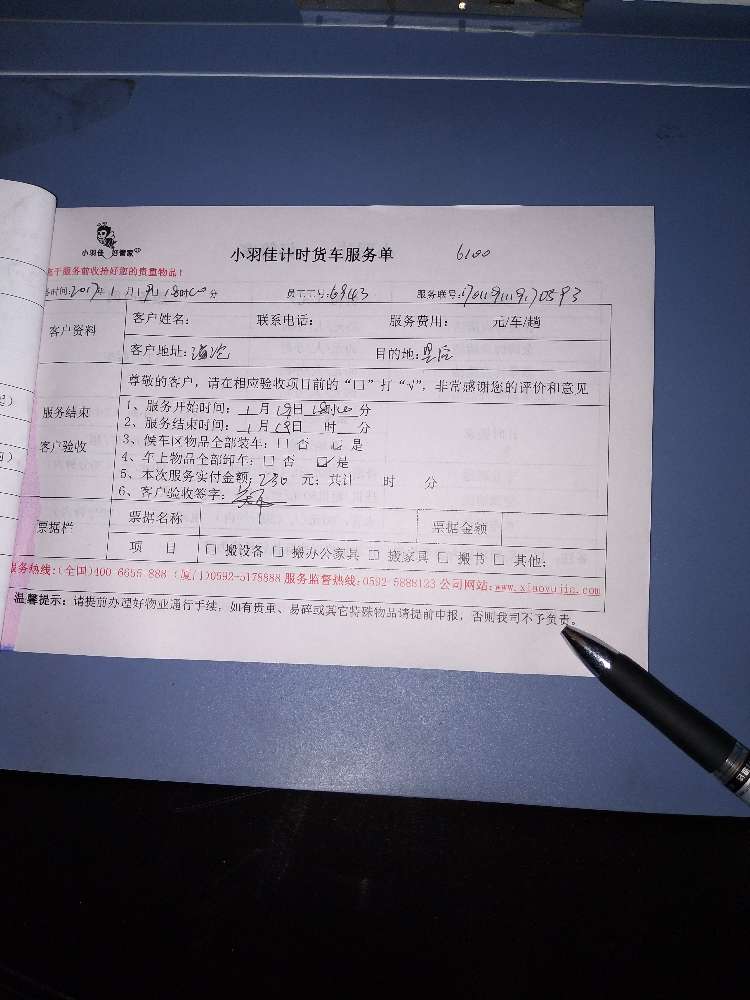 小羽佳 好管家
小羽佳计时货车服务单 6100
请于服务前收拾好您的贵重物品！
务时间:2017年1月19日18时00分 员工工号:6943 服务联号:
客户资料 客户姓名： 联系电话： 服务费用： 元/车/趟
客户地址: 目的地:
尊敬的客户，请在相应验收项目前的“口”打“√”，非常感谢您的评价和意见
服务结束
客户验收
1、服务开始时间：1月19日18时00分
2、服务结束时间：1月19日 时 分
3、候车区物品全部装车：□ 否 ☑ 是
4、车上物品全部卸车：□ 否 ☑ 是
5、本次服务实付金额：230 元；共计 时 分
6、客户验收签字：
票据栏 票据名称 票据金额
项 目 □ 搬设备 □ 搬办公家具 □ 搬家具 □ 搬书 □ 其他：
服务热线:(全国)400-6655-888 (厦门)0592-5178888 服务监督热线:0592-5888123 公司网站:www.xiaoyujia.com
温馨提示：请提前办理好物业通行手续，如有贵重、易碎或其它特殊物品请提前申报，否则我司不予负责。